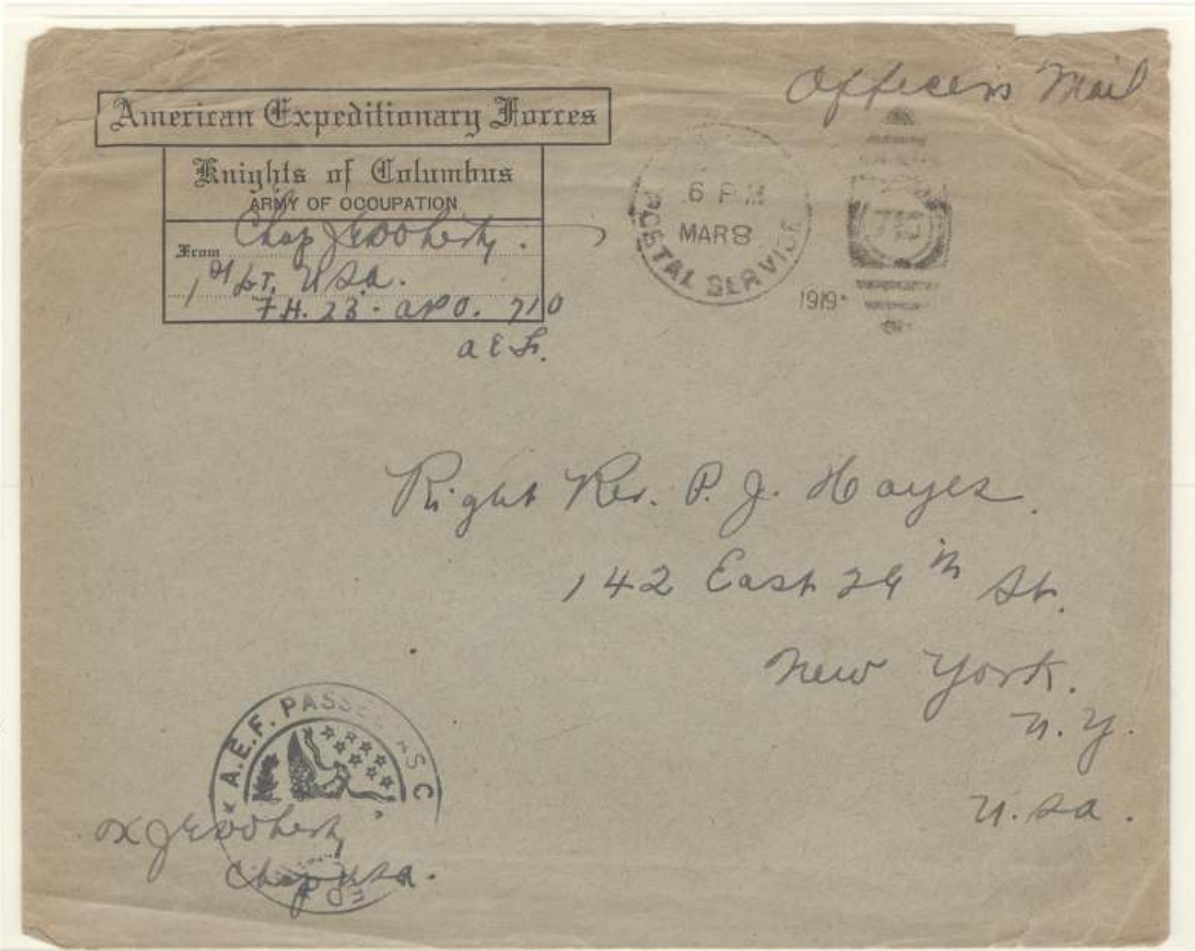 Officers Mail
American Expeditionary Forces
Knights of Columbus
ARMY OF OCCUPATION
From Chap J E Doherty.
1st LT. USA.
F.H. 23. APO. 710
A E F.
6 P M
MAR 8
POSTAL SERVICE
1919
710
Right Rev. P. J. Hayes.
142 East 29th St.
New York.
N. Y.
U.S.A.
A.E.F. PASSED AS C
OK J E Doherty
Chap USA.